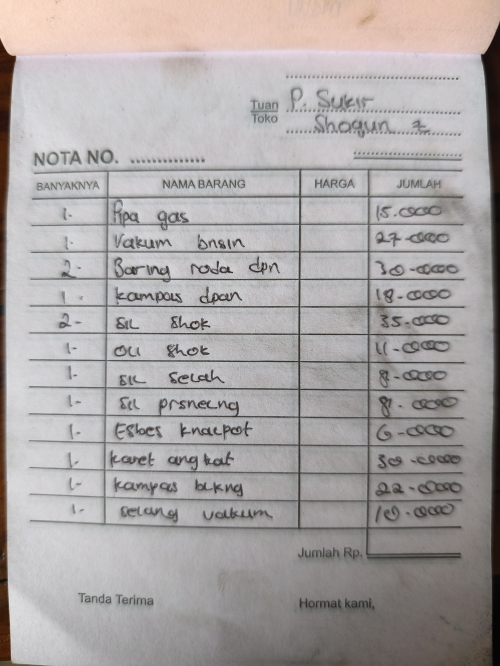 Tuan P. Sukir
Toko Shogun
NOTA NO. ...............
BANYAKNYA NAMA BARANG HARGA JUMLAH
1- Pipa gas 15.0000
1- Vakum bnsin 27-0000
2- Baring roda dpn 30-0000
1- kampas dpan 18-0000
2- SIL Shok 35-0000
1- OLI Shok 11-0000
1- SIL Selah 8-0000
1- SIL prsnecng 8-0000
1- Esbes knalpot 6-0000
1- karet angkat 30-0000
1- kampas blkng 22-0000
1- selang vakum 10-0000
Jumlah Rp.
Tanda Terima Hormat kami,